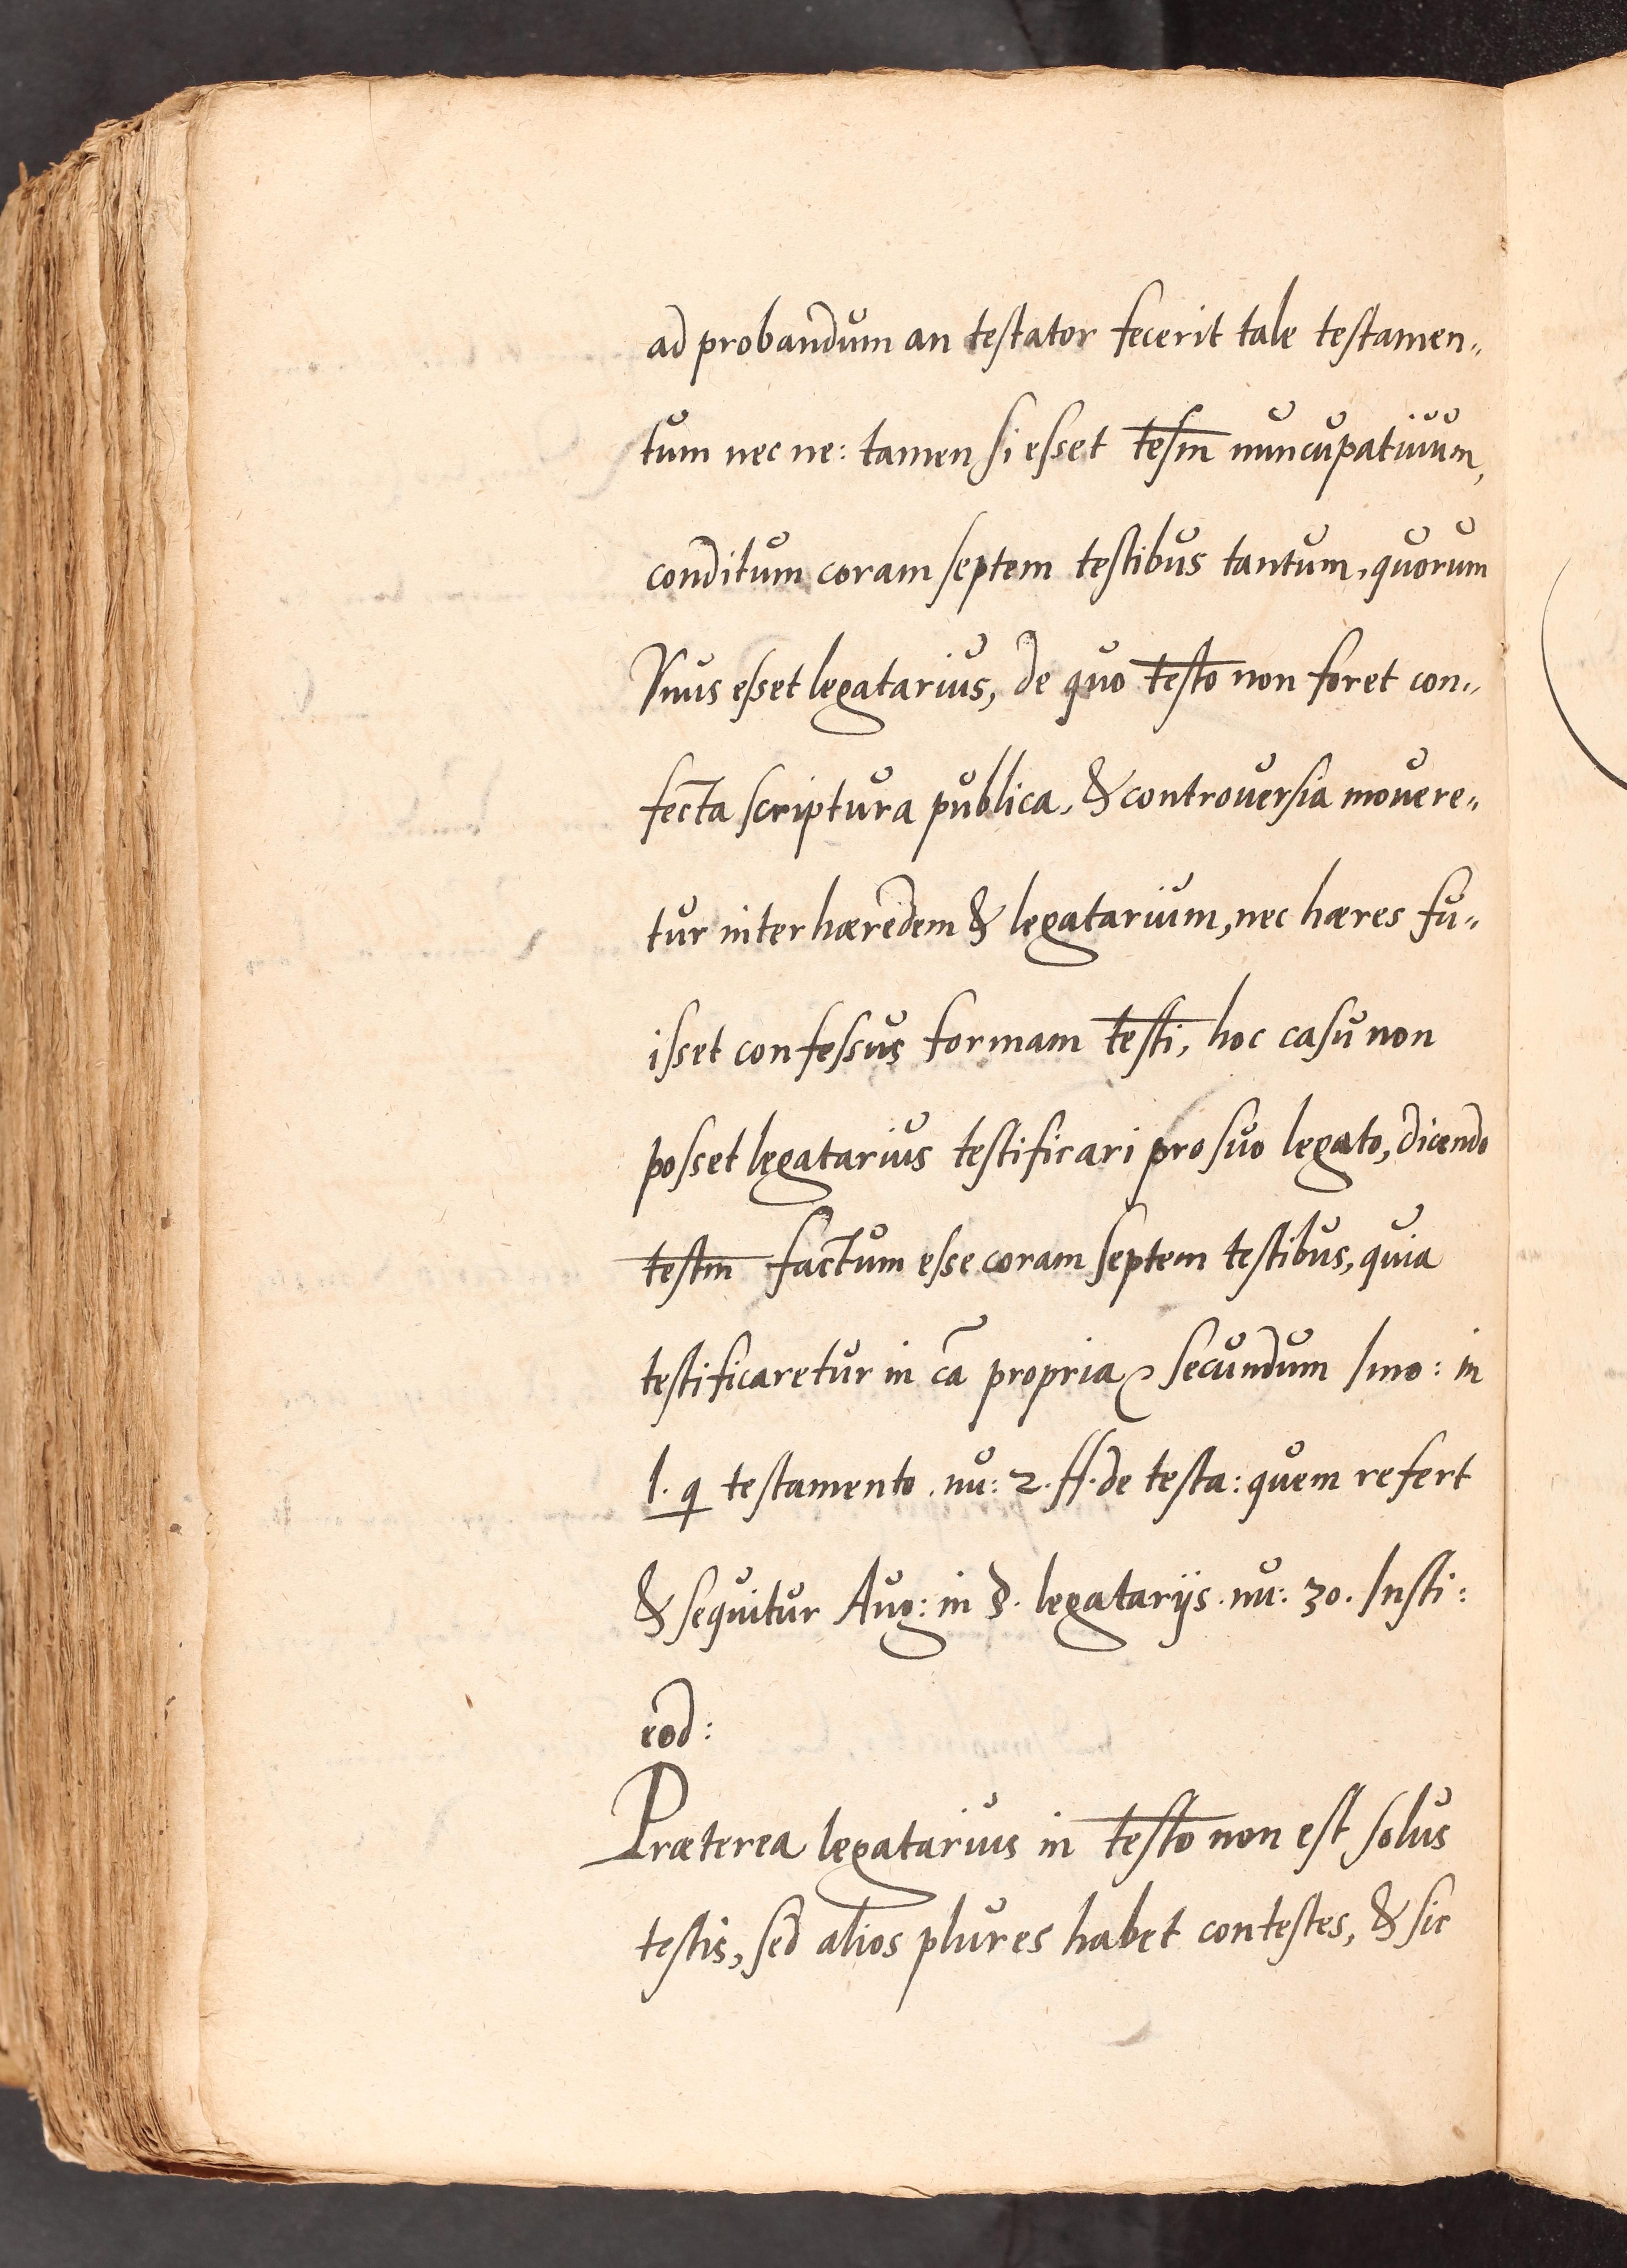 ad probandum an testator fecerit tale testamen„
tum nec ne: tamen si esset tesm̅ nuncupatiuum,
conditum coram septem testibus tantum, quorum
Vnus esset legatarius, de quo testo̅ non foret con„
fecta scriptura publica, & controuersia mouere„
tur inter hæredem & legatarium, nec hæres fu„
isset confessus formam testi̅, hoc casu non
posset legatarius testificari pro suo legato, dicendo
testm̅ factum esse coram septem testibus, quia
testificaretur in ca̅ propria, secundum Imo: in
l. q testamento. nu: 2. ff. de testa: quem refert
& sequitur Aug: in §. legatarijs. nu: 30. Insti:
eod:
Præterea legatarius in testo̅ non est solus
testis, sed alios plures habet contestes, & sic